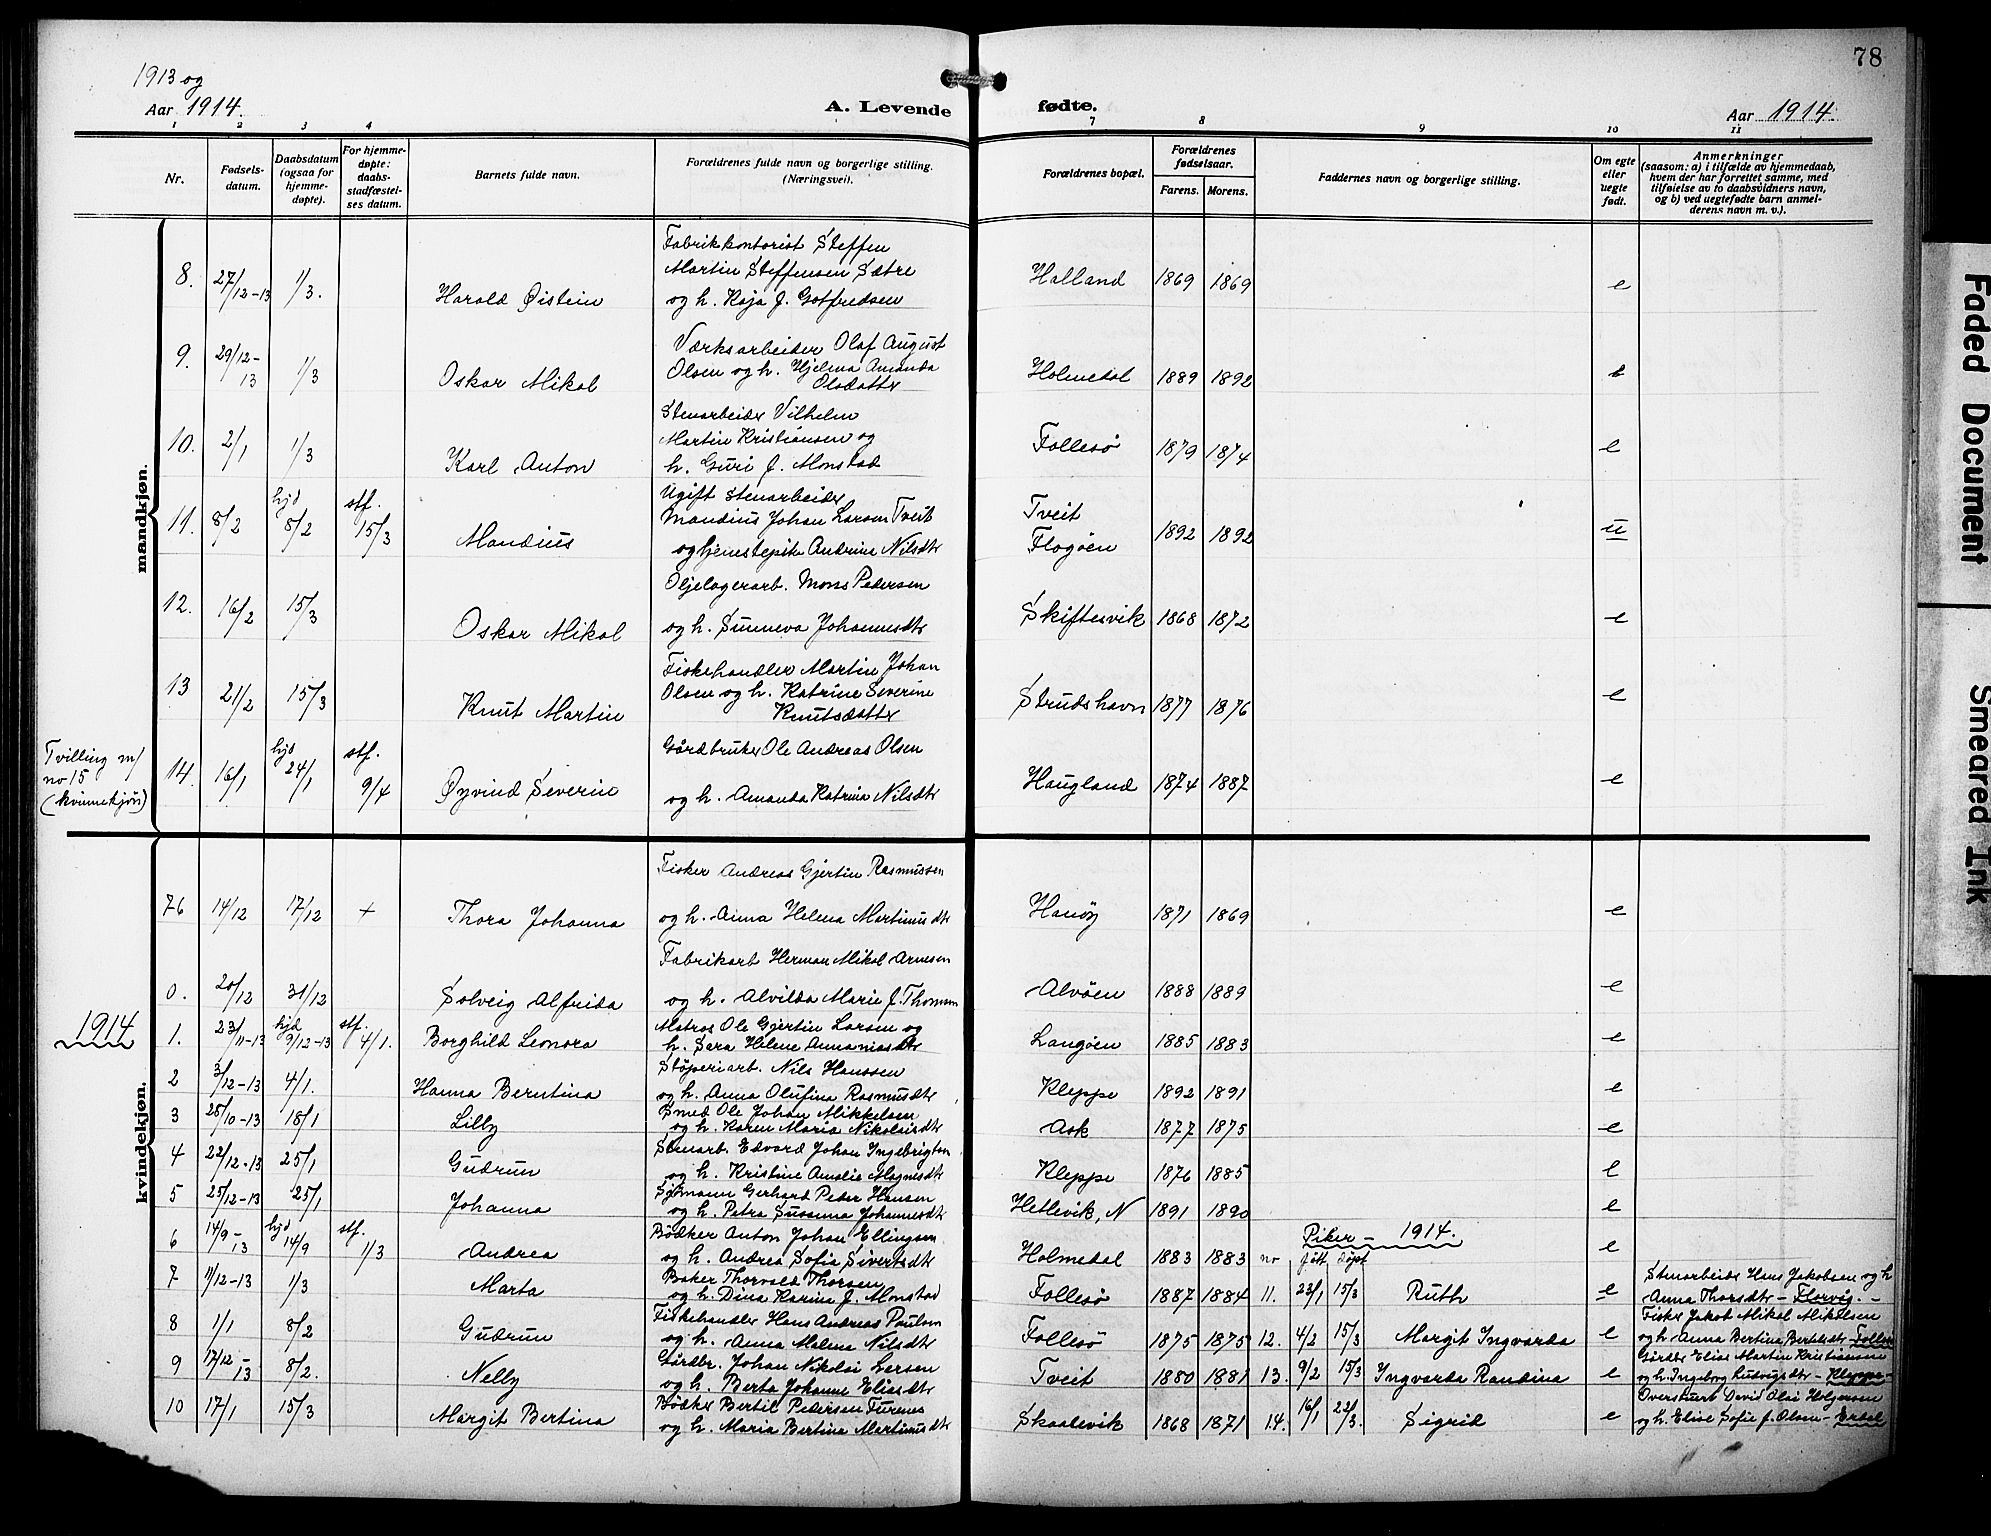 78
1913 og
Aar 1914.
A. Levende fødte.
Aar 1914.
1 2 3 4 7 8 9 10 11
Nr.
Fødsels-
datum.
Daabsdatum
(ogsaa for
hjemme-
døpte).
For hjemme-
døpte:
daabs-
stadfæstel-
ses datum.
Barnets fulde navn.
Forældrenes fulde navn og borgerlige stilling.
(Næringsvei).
Forældrenes bopæl.
Forældrenes
fødselsaar.
Farens. Morens.
Faddernes navn og borgerlige stilling.
Om egte
eller
uegte
født.
Anmerkninger
(saasom: a) i tilfælde av hjemmedaab,
hvem der har forrettet samme, med
tilføielse av to daabsvidners navn,
og b) ved uegtefødte barn anmel-
derens navn m. v.).
mandkjøn.
Fabrikkontorist Steffen
Martin Steffensen Sætre
8. 27/12-13 1/3. Harald Øistein og h. Kaja f. Gotfredsen Halland 1869 1869 e
Værksarbeider Olaf August
9. 29/12-13 1/3 Oskar Mikal Olsen og h. Hjelma Amanda Holmedal 1889 1892 e
Olsdatter
Stenarbeider Vilhelm
Martin Kristiansen og
10. 2/1 1/3 Karl Anton h. Guri f. Monstad Follesø 1879 1874 e
Ugift stenarbeider
hjd stf. Mandius Johan Larsen Tveit Tveit
11. 8/2 8/2 15/3 Mandius og tjenestepike Andrina Nilsdtr Flogøen 1892 1892 u
Oljelagerarb. Mons Pedersen
12. 16/2 15/3 Oskar Mikal og h. Sunneva Johannesdtr Skiftesvik 1868 1872 e
Fiskehandler Martin Johan
13 21/2 15/3 Knut Martin Olsen og h. Katrine Severine Strudshavn 1877 1876 e
Knutsdatter
Tvilling m/
no 15
(kvinnekjøn)
hjd stf. Gårdbruker Ole Andreas Olsen
14. 16/1 24/1 9/4 Øyvind Severin og h. Amanda Katrina Nilsdtr Haugland 1874 1887 e
kvindekjøn.
Fisker Andreas Gjertin Rasmussen
76 14/12 17/12 + Thora Johanna og h. Anna Helena Martinusdtr Hanøy 1871 1869 e
Fabrikarb Herman Mikal Arnesen
0. 20/12 31/12 Solveig Alfrida og h. Alvilda Marie f. Thomsen Alvøen 1888 1889 e
1914
hjd stf. Matros Ole Gjertin Larsen og
1. 23/11-13 9/12-13 4/1. Borghild Leonora h. Sara Helene Annaniasdtr Langøen 1885 1883 e
Støperiarb. Nils Hanssen
2 3/12-13 4/1. Hanna Berntina og h. Anna Olufina Rasmusdtr Kleppe 1892 1891 e
Smed Ole Johan Mikkelsen
3 25/10-13 18/1 Lilly og h. Karen Maria Nikolaisdtr Ask 1877 1875 e
Stenarb. Edvard Johan Ingebrigtsen
4 22/12-13 25/1 Gudrun og h. Kristine Amalie Magnesdtr Kleppe 1876 1885 e
Sjømann Gerhard Peder Hansen
5 25/12-13 25/1 Johanna og h. Petra Susanna Johannesdtr Hetlevik, N 1891 1890 e
hjd stf. Bødker Anton Johan Ellingsen Piker - 1914.
6 14/9-13 14/9 1/3 Andrea og h. Andrea Sofia Sivertsdtr Holmedal 1883 1883 e
no født døpt
Baker Thorvald Thorsen
7 11/12-13 1/3 Marta og h. Dina Karina f. Monstad Follesø 1887 1884 11. 23/1 15/3 Ruth e
Stenarbeider Hans Jakobsen og h
Anna Thorsdtr - Florvåg. -
Fiskehandler Hans Andreas Paulsen
8 1/1 8/2 Gudrun og h. Anna Malena Nilsdtr Follesø 1875 1875 12. 4/2 15/3 Margit Ingvarda e
Fisker Jakob Mikal Mikalsen
og h. Anna Bertina Bertelsdtr - Follesø
Gårdbr. Johan Nikolai Larsen
9 17/12-13 8/2. Nelly og h. Berta Johanne Eliasdtr Tveit 1880 1881 13. 9/2 15/3 Ingvarda Randina e
Gårdbr Elias Martin Kristiansen
og h. Ingeborg Ludvigsdtr - Kleppe -
Bødker Bertil Pedersen Turenes
10 17/1 15/3 Margit Bertina og h. Maria Bertina Martinusdtr Skaalevik 1868 1871 14. 16/1 22/3. Sigrid e
David Olai Holgersen
og h. Elise Sofie f. Olsen - Erdal
Faded Document
Smeared Ink